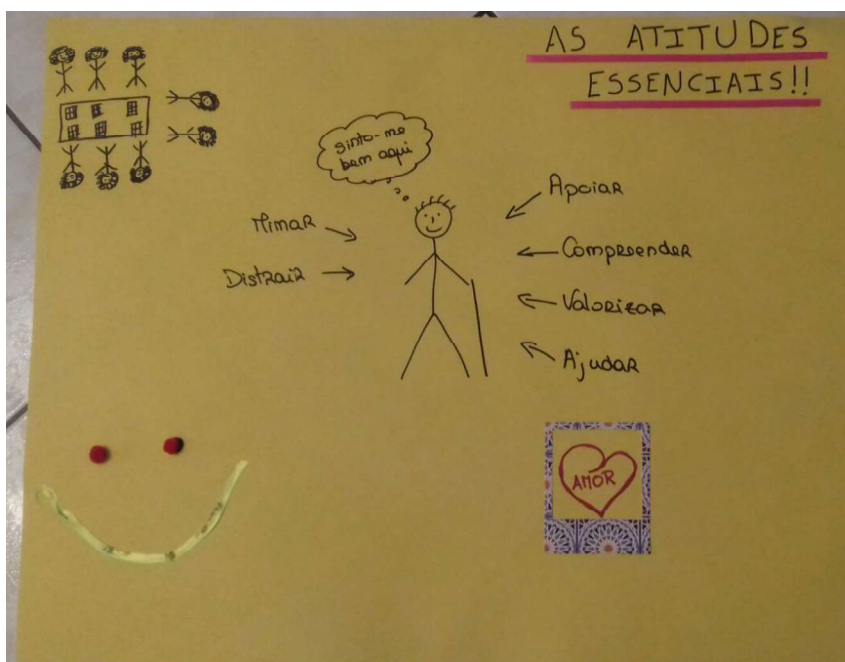 AS ATITUDES
ESSENCIAIS!!
sinto-me
bem aqui
Mimar
Distrair
Apoiar
Compreender
Valorizar
Ajudar
AMOR